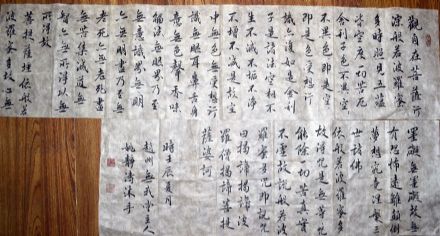 觀自在菩薩行
深般若波羅蜜
多時照見五蘊
皆空度一切苦厄
舍利子色不異空
即是色受想行
識亦復如是舍利
子是諸法空相不
生不滅不垢不淨
不增不減是故空
中無色無受想行
識無眼耳鼻舌身
意無色聲香味
觸法無眼界乃至
無意識界無無明
亦無無明盡乃至
老死亦無老死盡
無苦集滅道無
智亦無得以無
所得故
菩提薩埵依般若
波羅蜜多故心無
罣礙無罣礙故無
有恐怖遠離顛倒
夢想究竟涅槃三
世諸佛
依般若波羅蜜多
故得 咒是無等等咒
能除一切苦真實
不虛故說般若波
羅蜜多咒即說咒
曰揭諦揭諦波
羅僧揭諦菩提
薩婆訶
時壬辰夏月
趙州無我堂主人
姚靜濤沐手